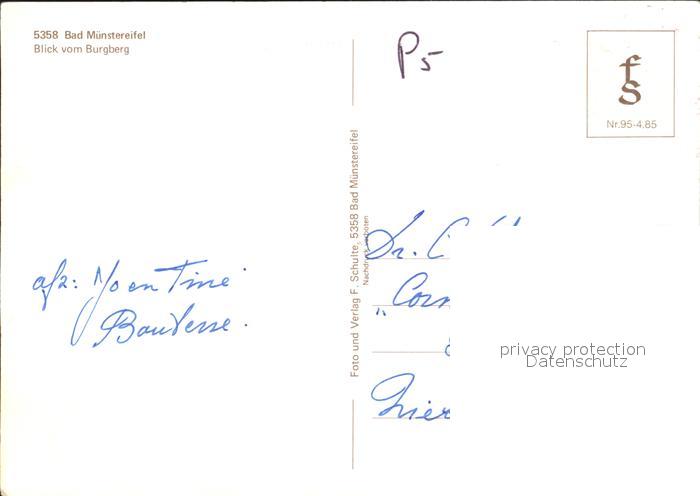 5358 Bad Münstereifel
Blick vom Burgberg
P5
fs
Nr.95-4.85
Foto und Verlag F. Schulte, 5358 Bad Münstereifel
Nachdruck verboten
afz: Yo en Tine
Dr. C
"Corn
privacy protection
Datenschutz